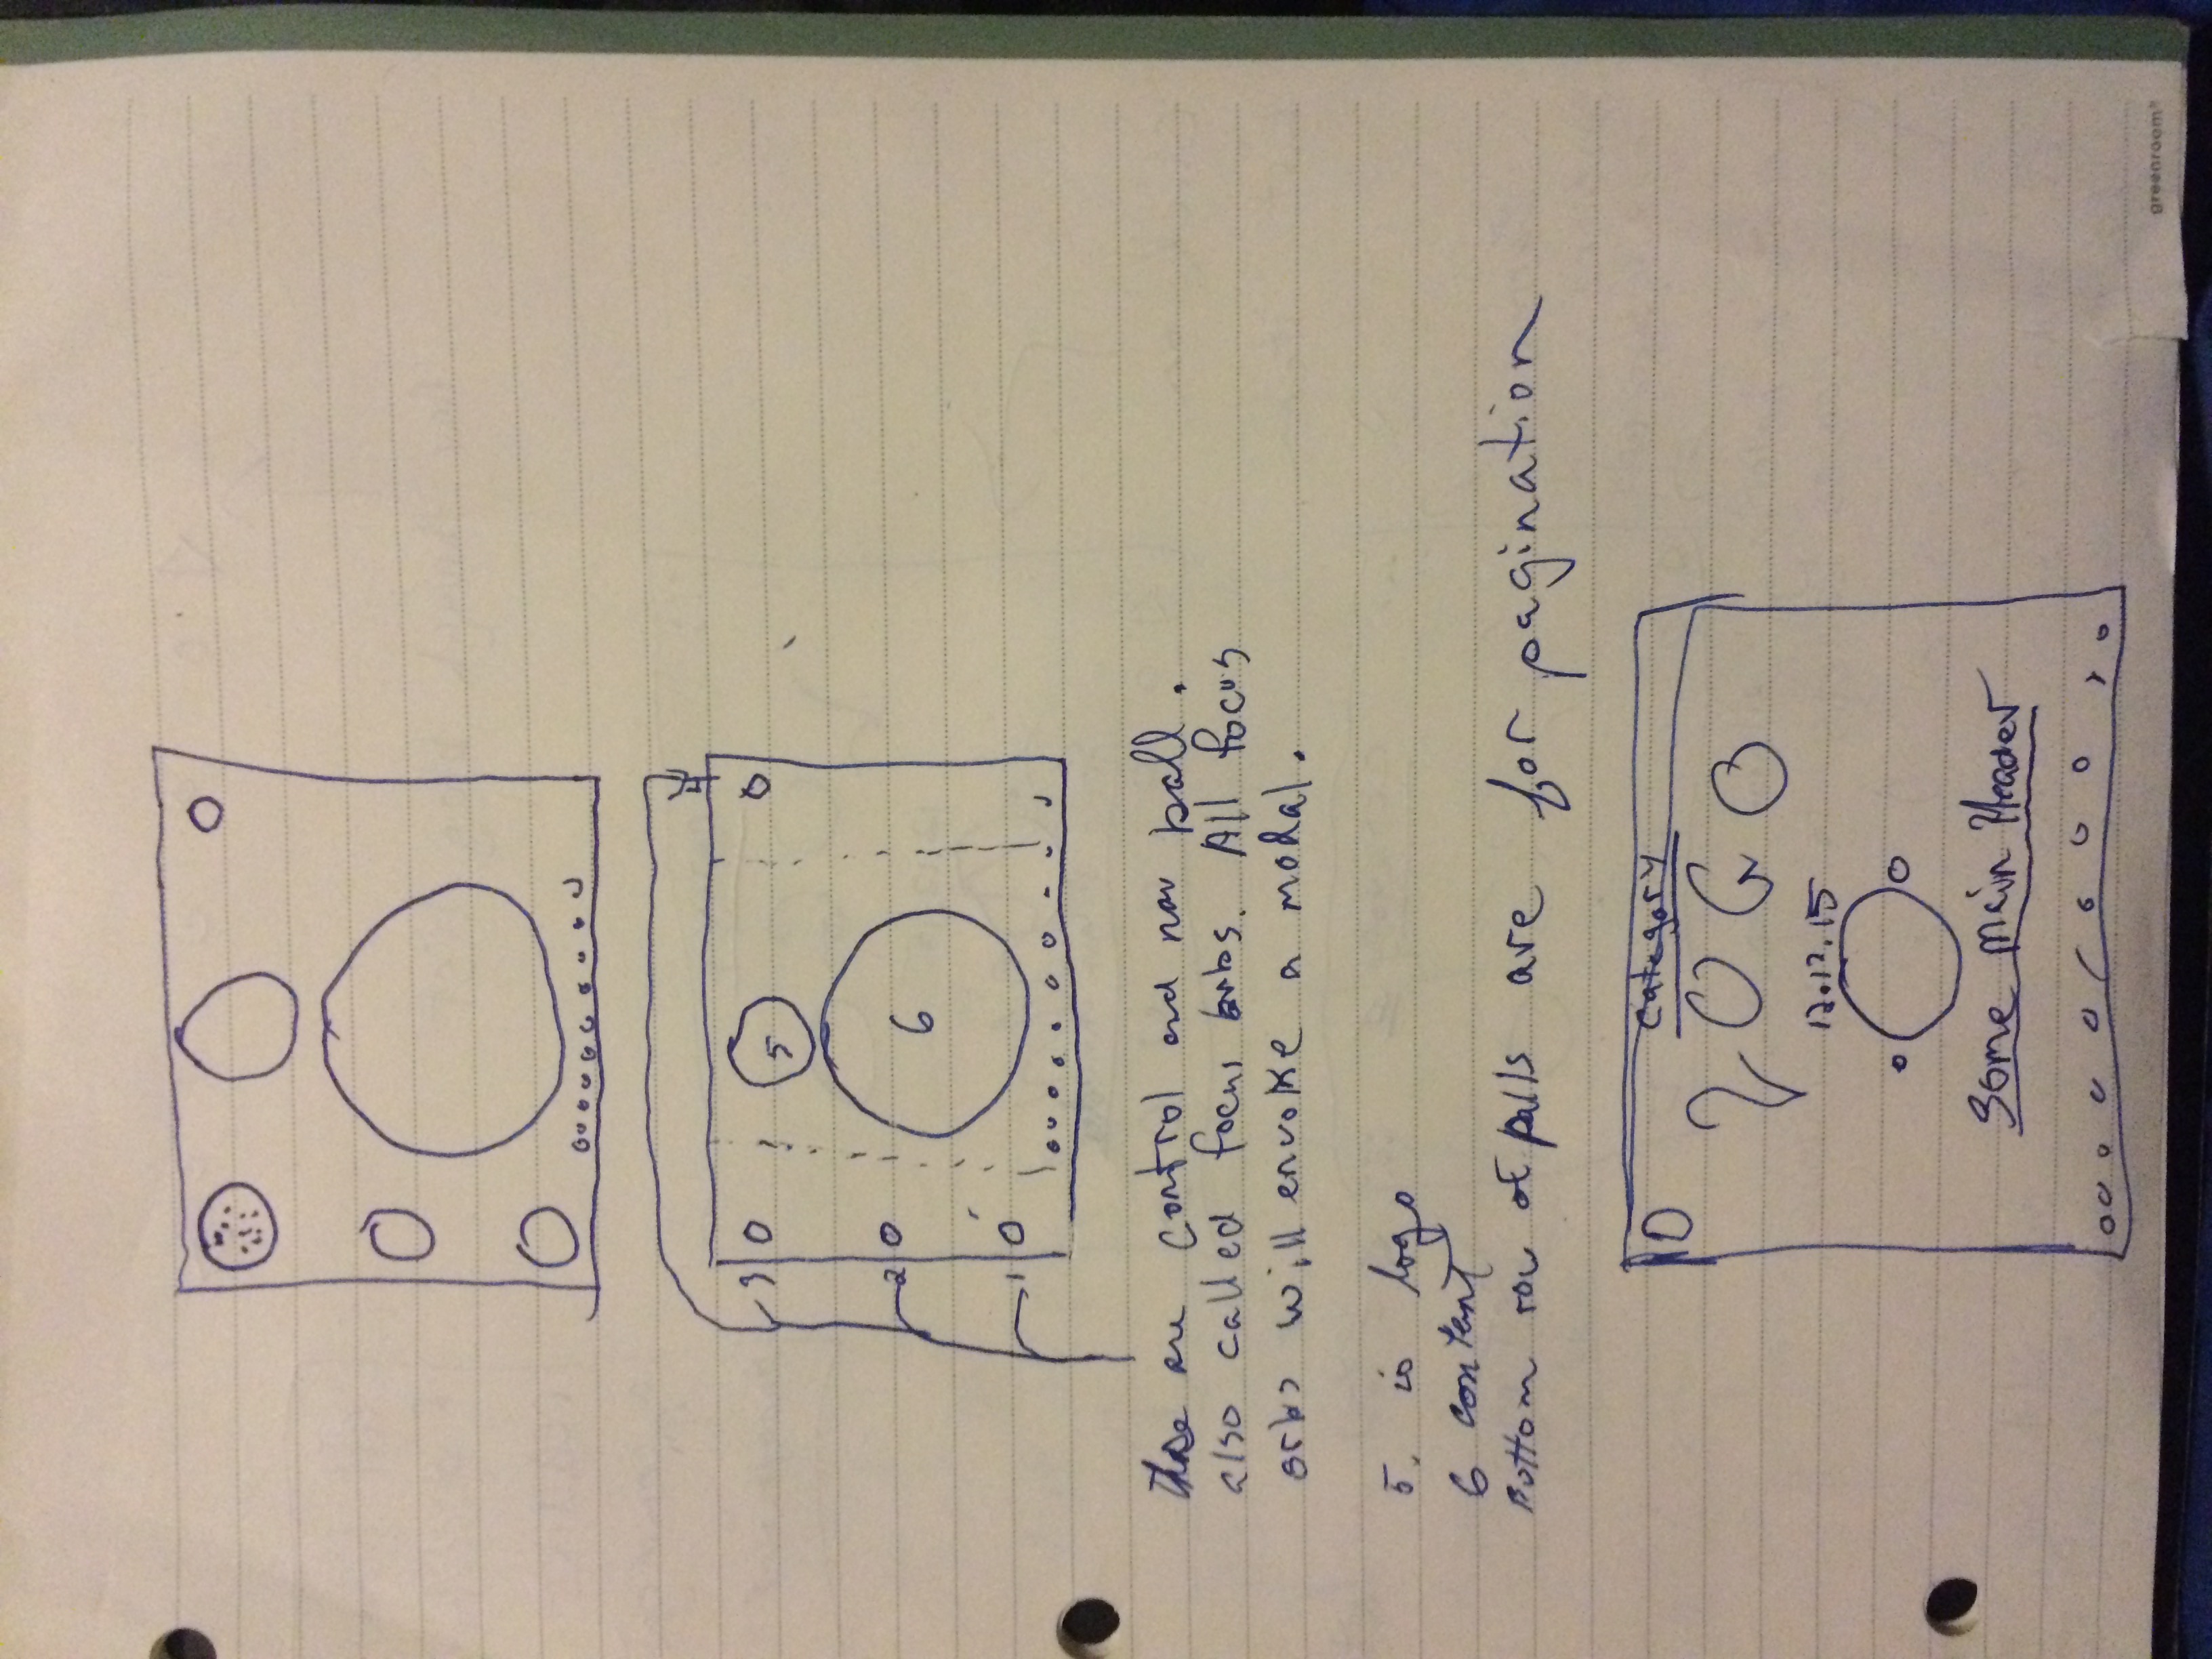 3
4
5
2
6
1
those are control and nav ball.
also called focus orbs. All focus
orbs will envoke a modal.
5. is logo
6 content
Bottom row of balls are for pagination
Category
LOGO
12.12.15
Some main Header
greenroom